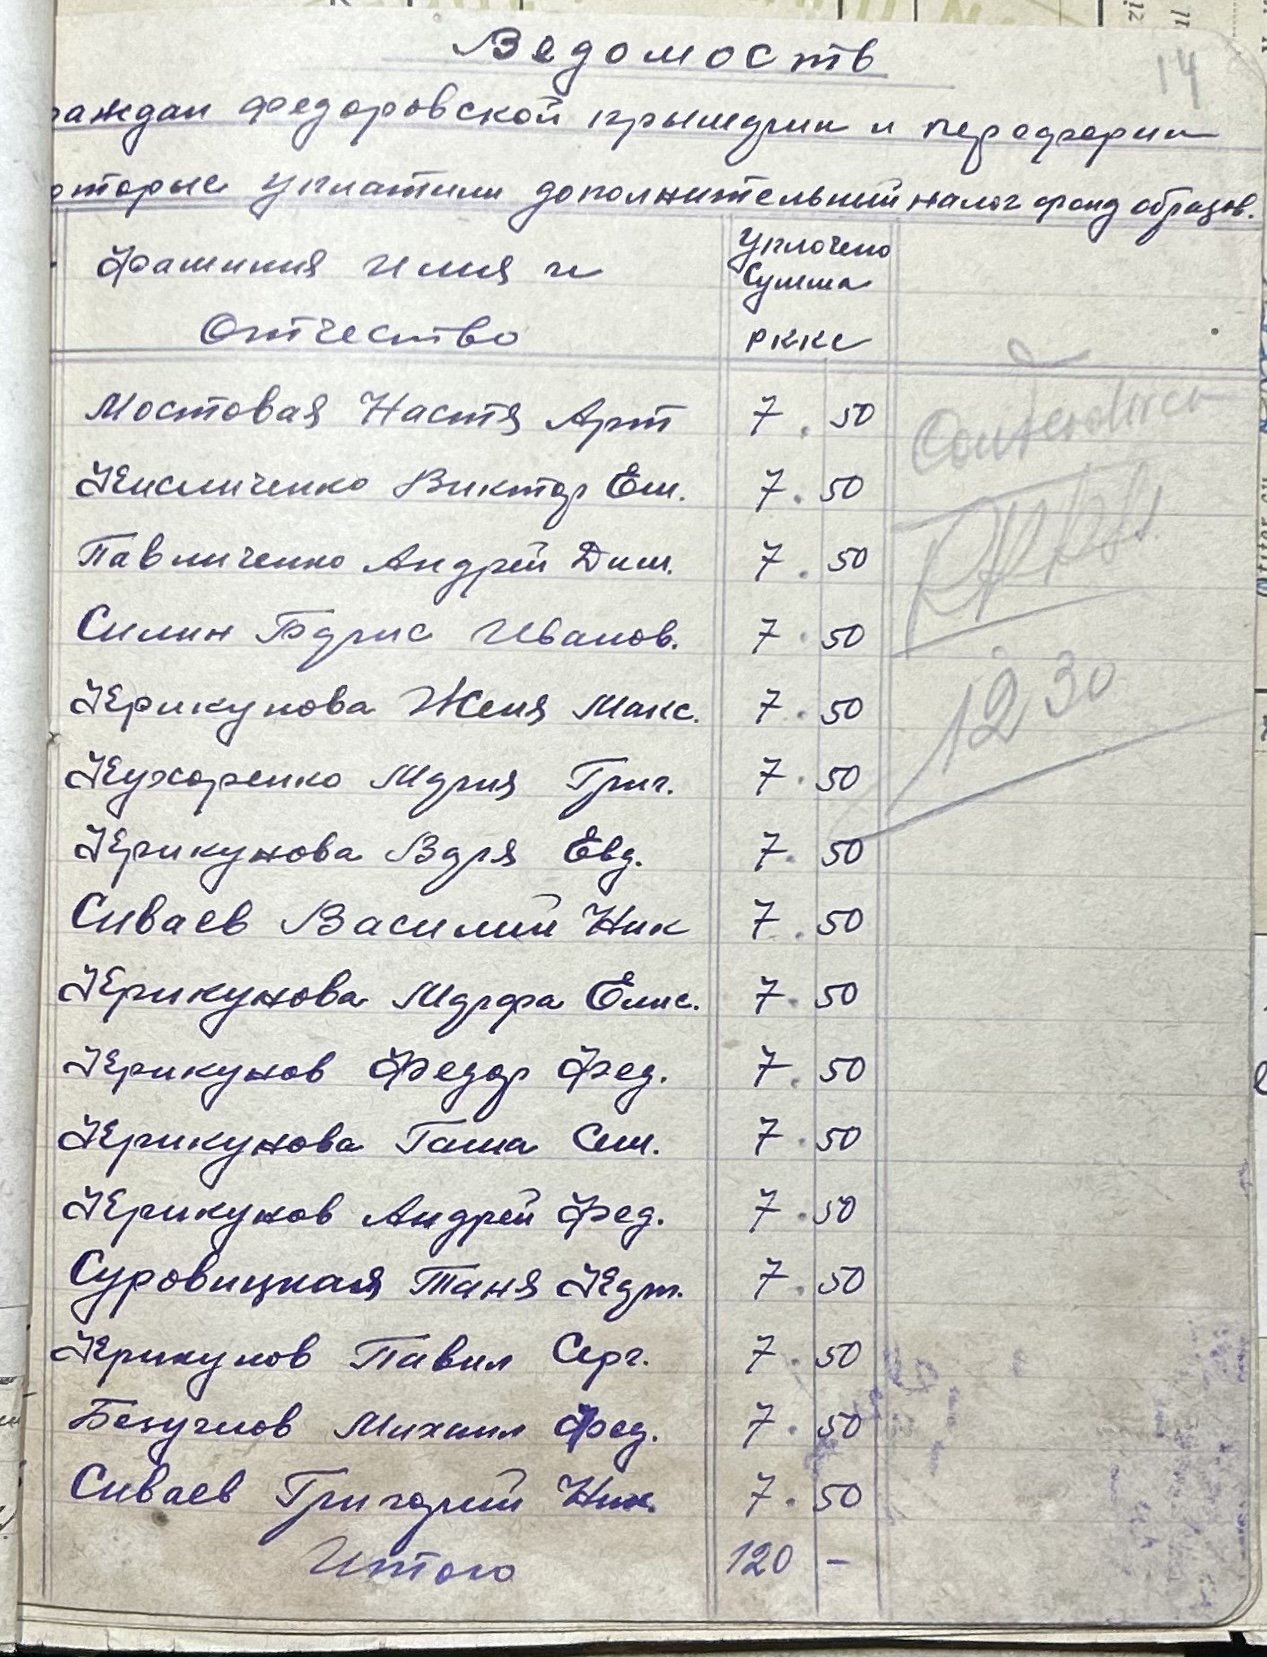 Ведомоств
14
раждан федоровской
оторые уплатили дополнительный налог фонд образов.
Фамилия Имя и
Отчество
Уплочено
Сумма
РККС
Мостовая Настя Арт 7.50
Кисличенко Виктор Ем. 7.50
Павличенко Андрей Дим. 7.50
Силин Борис Иванов. 7.50
Крикунова Женя Макс. 7.50
Кухаренко Мария Григ. 7.50
Крикунова Варя Евд. 7.50
Сиваев Василий Ник 7.50
Крикунова Марфа Елис. 7.50
Крикунов Федор Фед. 7.50
Крикунова Гаша Сем. 7.50
Крикунов Андрей Фед. 7.50
Суровицкая Таня Кдт. 7.50
Крикунов Павил Серг. 7.50
Михаил Фед. 7.50
Сиваев Григорий Ник. 7.50
Итого 120 -
12 30